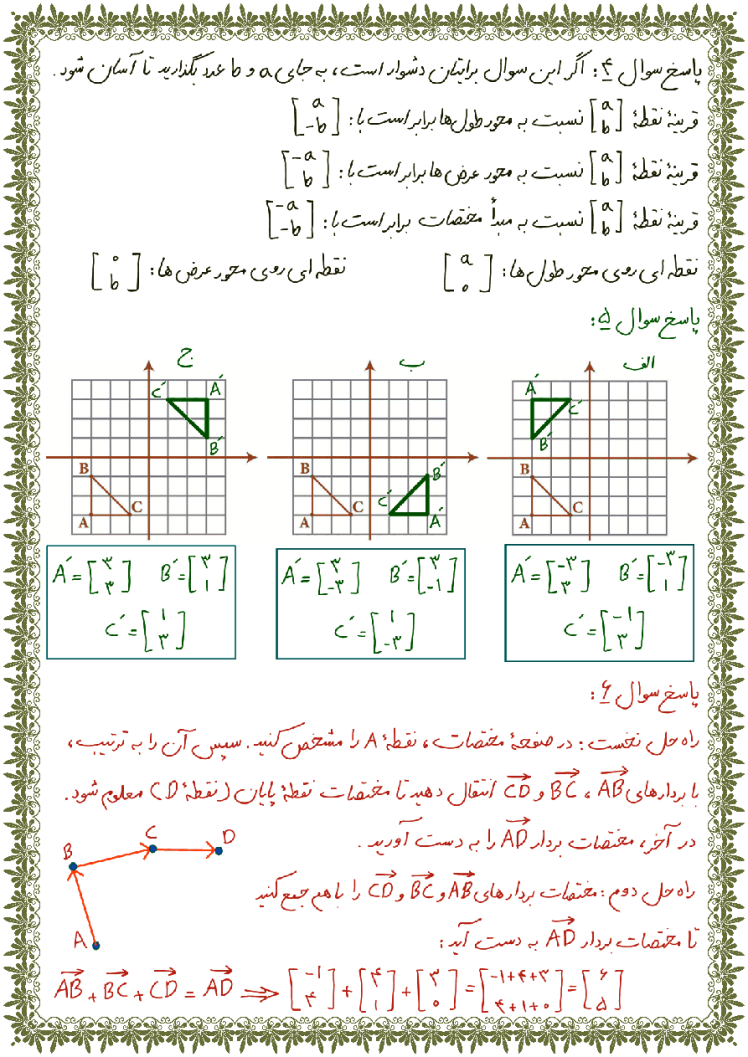 پاسخ سوال ۴: اگر این سوال برایتان دشوار است، به جای a و b عدد بگذارید تا آسان شود.
قرینهٔ نقطهٔ [a b] نسبت به محور طول‌ها برابر است با: [a -b]
قرینهٔ نقطهٔ [a b] نسبت به محور عرض‌ها برابر است با: [-a b]
قرینهٔ نقطهٔ [a b] نسبت به مبدأ مختصات برابر است با: [-a -b]
نقطه‌ای روی محور طول‌ها: [a ۰] نقطه‌ای روی محور عرض‌ها: [۰ b]
پاسخ سوال ۵:
الف ب ج
A´ C´ B´ B C A
B´ C´ A´ B C A
C´ A´ B´ B C A
A´=[-۳ ۳] B´=[-۳ ۱]
C´=[-۱ ۳]
A´=[۳ -۳] B´=[۳ -۱]
C´=[۱ -۳]
A´=[۳ ۳] B´=[۳ ۱]
C´=[۱ ۳]
پاسخ سوال ۶:
راه حل نخست: در صفحهٔ مختصات، نقطهٔ A را مشخص کنید. سپس آن را به ترتیب،
با بردارهای AB، BC و CD انتقال دهید تا مختصات نقطهٔ پایان (نقطهٔ D) معلوم شود.
در آخر، مختصات بردار AD را به دست آورید.
راه حل دوم: مختصات بردارهای AB و BC و CD را با هم جمع کنید
تا مختصات بردار AD به دست آید:
A B C D
AB + BC + CD = AD ⟹ [-۱ ۴] + [۴ ۱] + [۳ ۰] = [-۱+۴+۳ ۴+۱+۰] = [۶ ۵]